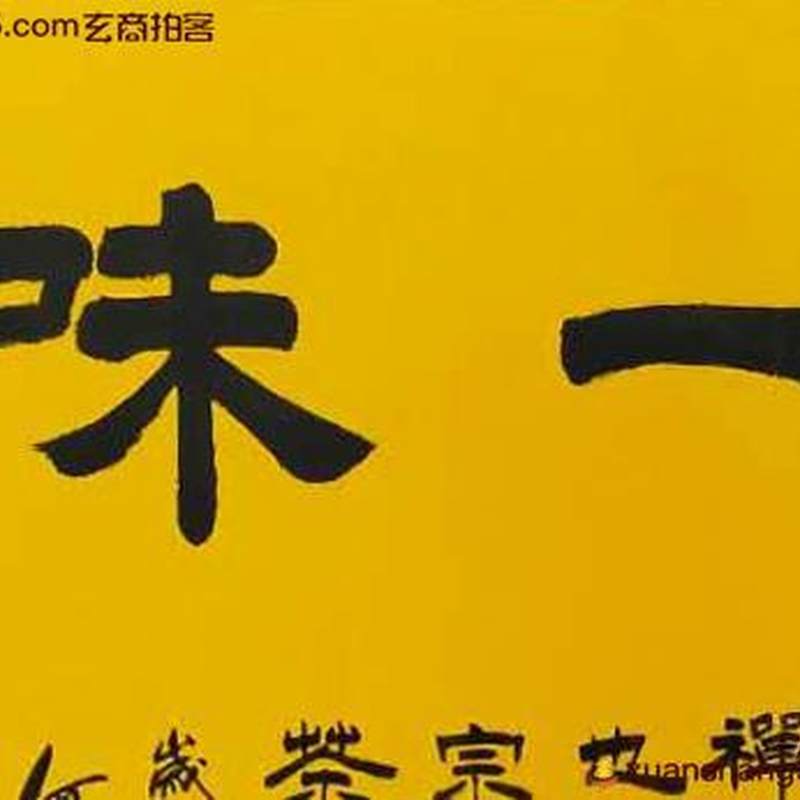 .com玄商拍客
味 一
歲 茶 宗 也 禪